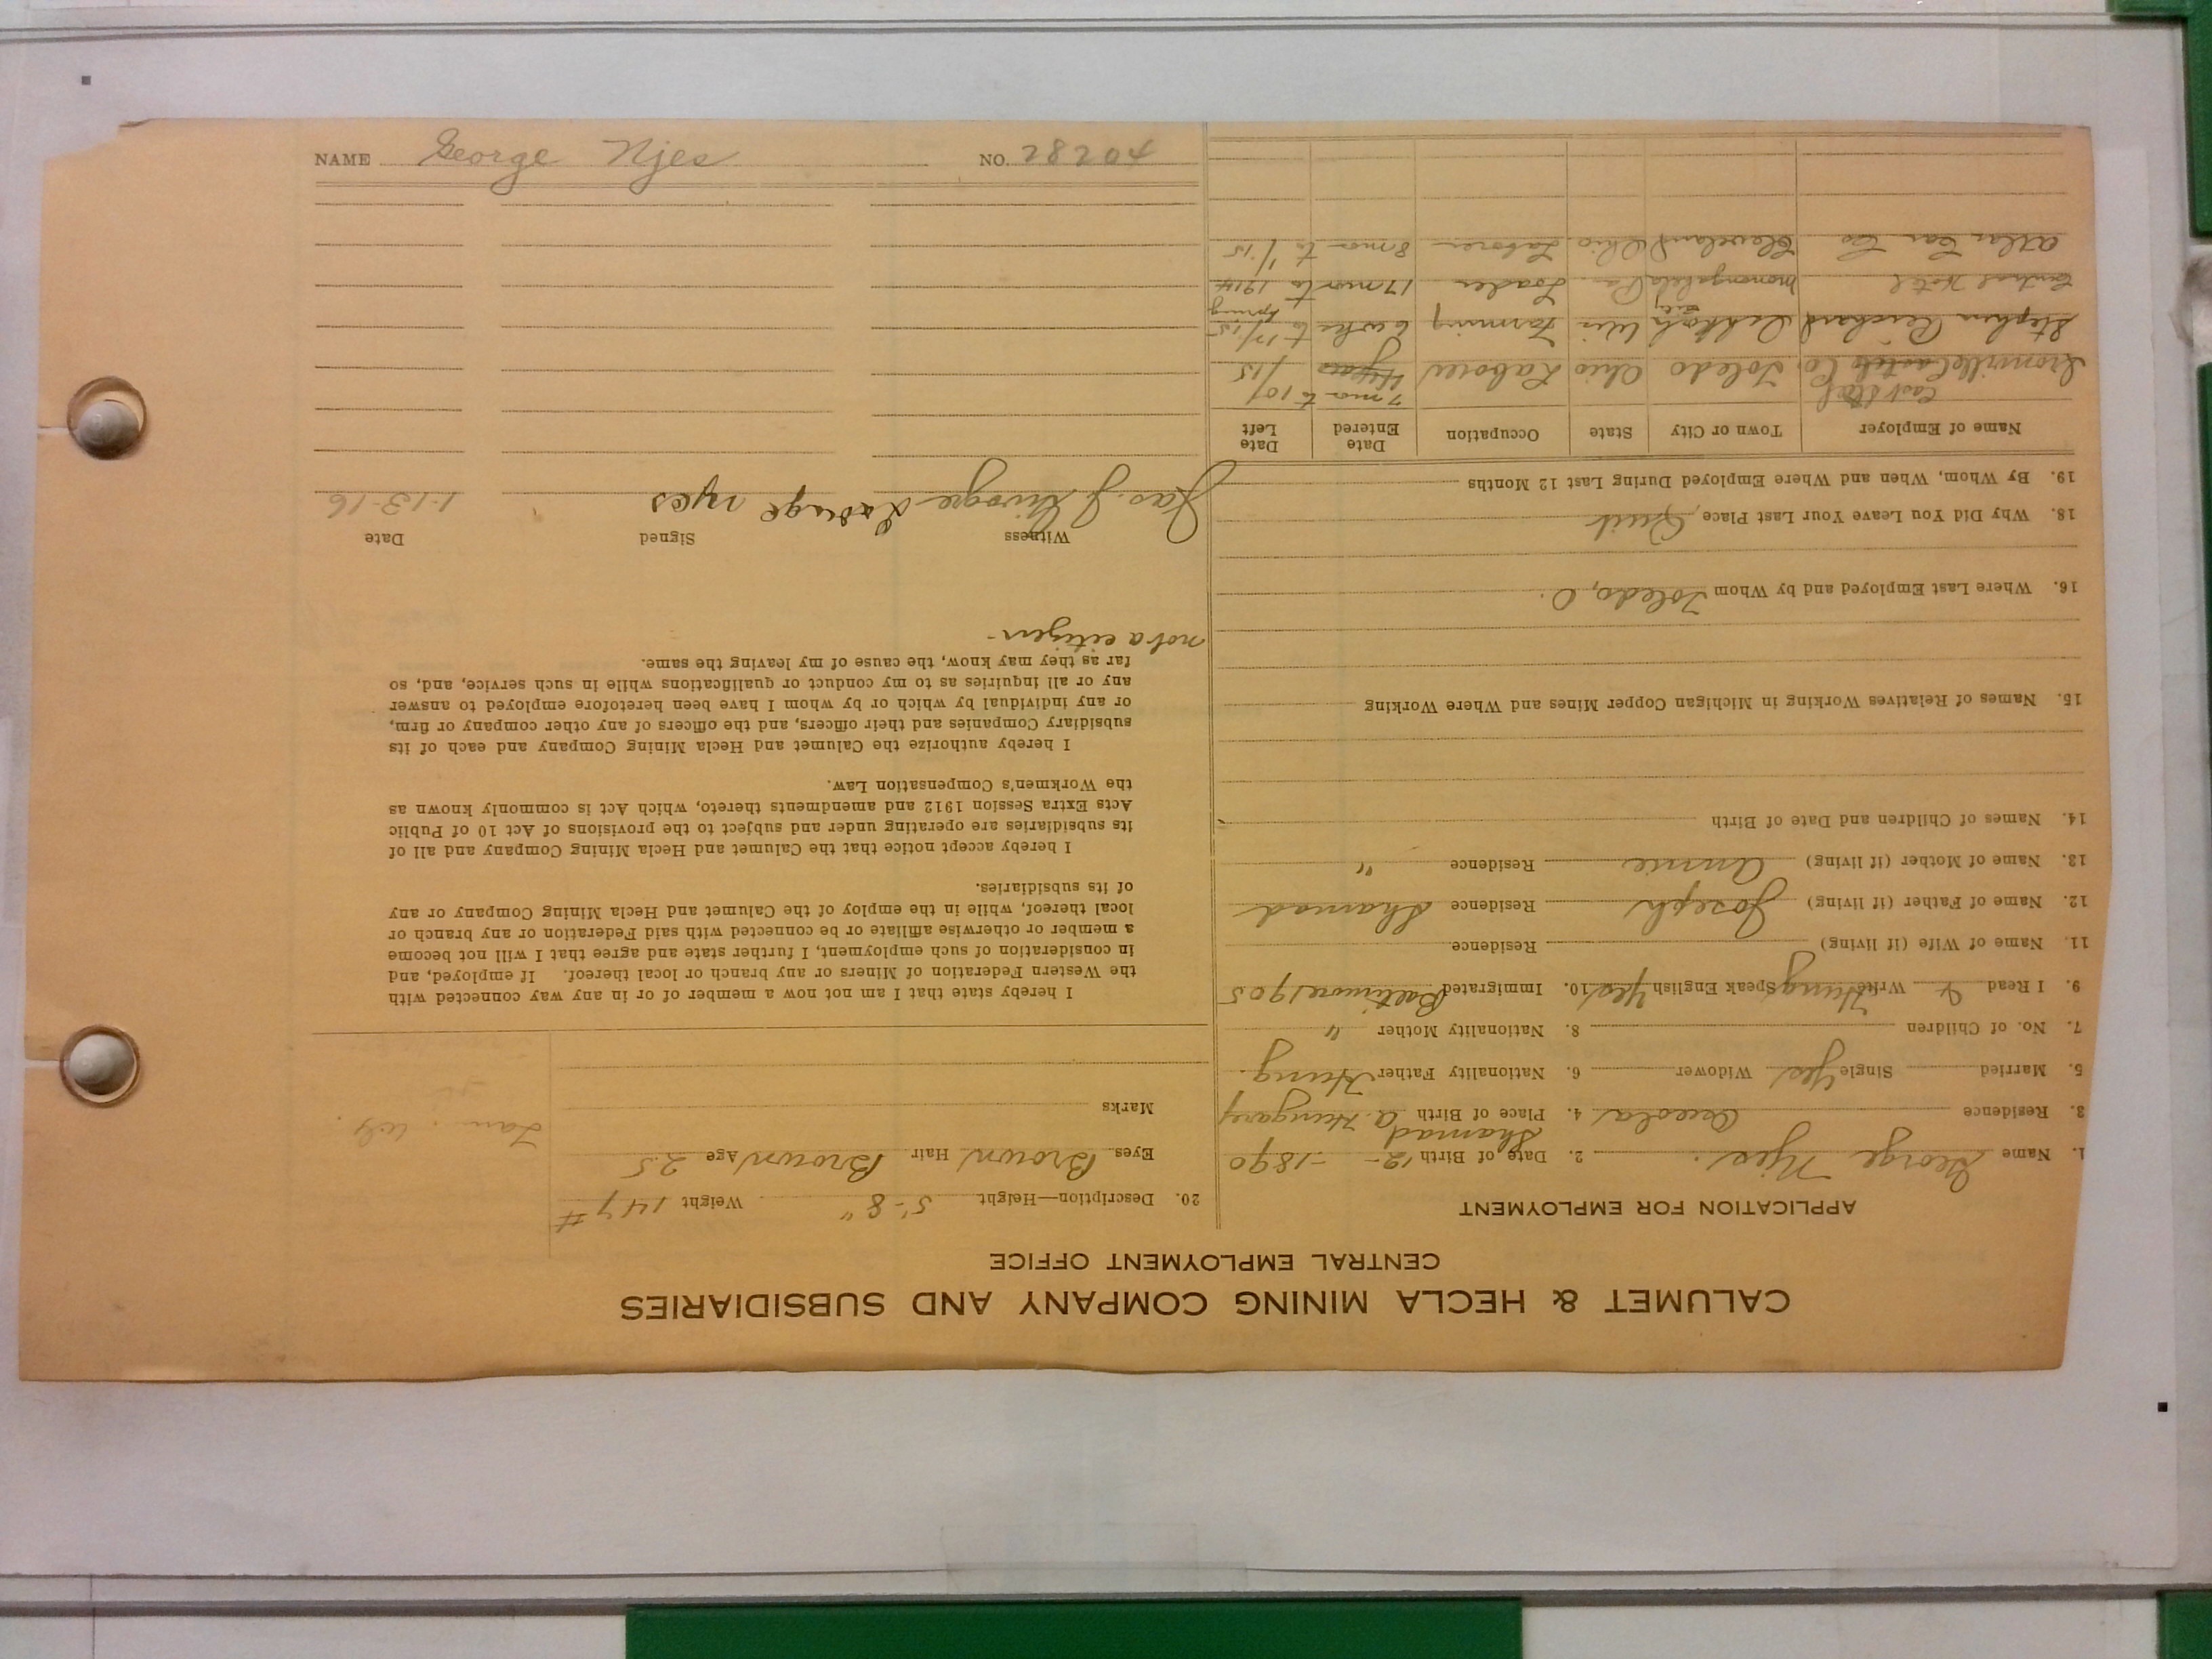 CALUMET & HECLA MINING COMPANY AND SUBSIDIARIES
CENTRAL EMPLOYMENT OFFICE
APPLICATION FOR EMPLOYMENT
1. Name George Njes. 2. Date of Birth 12 - - 1890
Shamad
3. Residence Osceola 4. Place of Birth A. Hungary
5. Married Single Yes Widower 6. Nationality Father Hung.
7. No. of Children 8. Nationality Mother "
9. I Read & Write Hung Speak English Yes 10. Immigrated Baltimore 1905
11. Name of Wife (if living) Residence
12. Name of Father (if living) Joseph Residence Shamad
13. Name of Mother (if living) Annie Residence "
14. Names of Children and Date of Birth
15. Names of Relatives Working in Michigan Copper Mines and Where Working
16. Where Last Employed and by Whom Toledo, O.
18. Why Did You Leave Your Last Place, Quit
19. By Whom, When and Where Employed During Last 12 Months
Name of Employer Town or City State Occupation Date Entered Date Left
Ironville Co. Toledo Ohio Laborer 7 mo to 10/15
Stephen Wis Farming 6 wks to 15
Central Hotel Monongahela City Pa. Loader 17 mos to Spring 1914
Car Co Cleveland Ohio Laborer 8 mos to 1/15
20. Description—Height 5'-8" Weight 147 #
Eyes Brown Hair Brown Age 25
Marks
I hereby state that I am not now a member of or in any way connected with
the Western Federation of Miners or any branch or local thereof. If employed, and
in consideration of such employment, I further state and agree that I will not become
a member or otherwise affiliate or be connected with said Federation or any branch or
local thereof, while in the employ of the Calumet and Hecla Mining Company or any
of its subsidiaries.
I hereby accept notice that the Calumet and Hecla Mining Company and all of
its subsidiaries are operating under and subject to the provisions of Act 10 of Public
Acts Extra Session 1912 and amendments thereto, which Act is commonly known as
the Workmen's Compensation Law.
I hereby authorize the Calumet and Hecla Mining Company and each of its
subsidiary Companies and their officers, and the officers of any other company or firm,
or any individual by which or by whom I have been heretofore employed to answer
any or all inquiries as to my conduct or qualifications while in such service, and, so
far as they may know, the cause of my leaving the same.
not a citizen -
Witness Signed Date
Jas. J. nyes 1-13-16
NAME George Njes NO. 28204